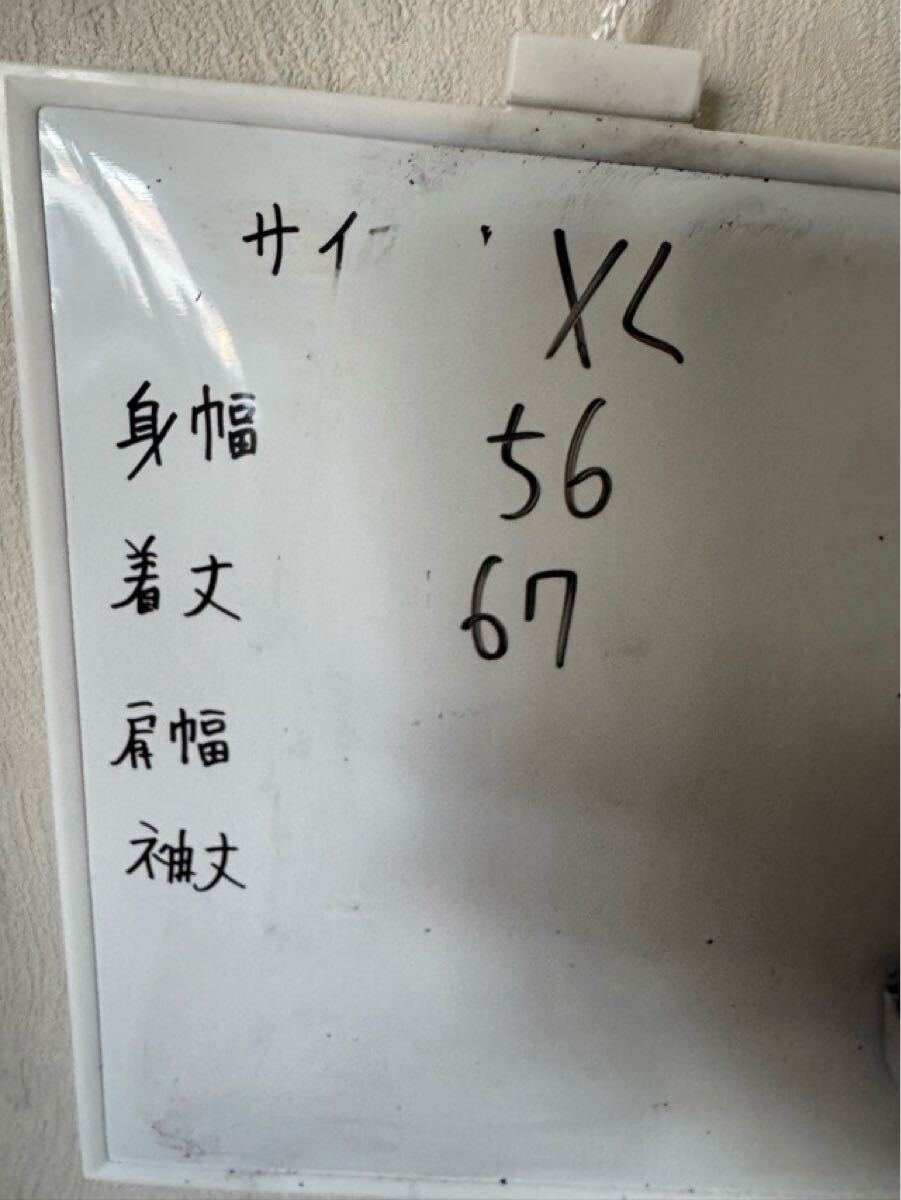 サイ XL
身幅 56
着丈 67
肩幅
袖丈